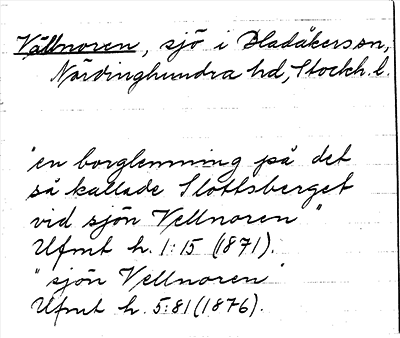 Vällnoren, sjö i Bladåkers sn,
Närdinghundra hd, Stockh. l.
"en borglemning på det
så kallade Slottsberget
vid sjön Vellnoren"
Ufmt h. 1:15 (1871).
"sjön Vellnoren"
Ufmt h. 5:81 (1876).